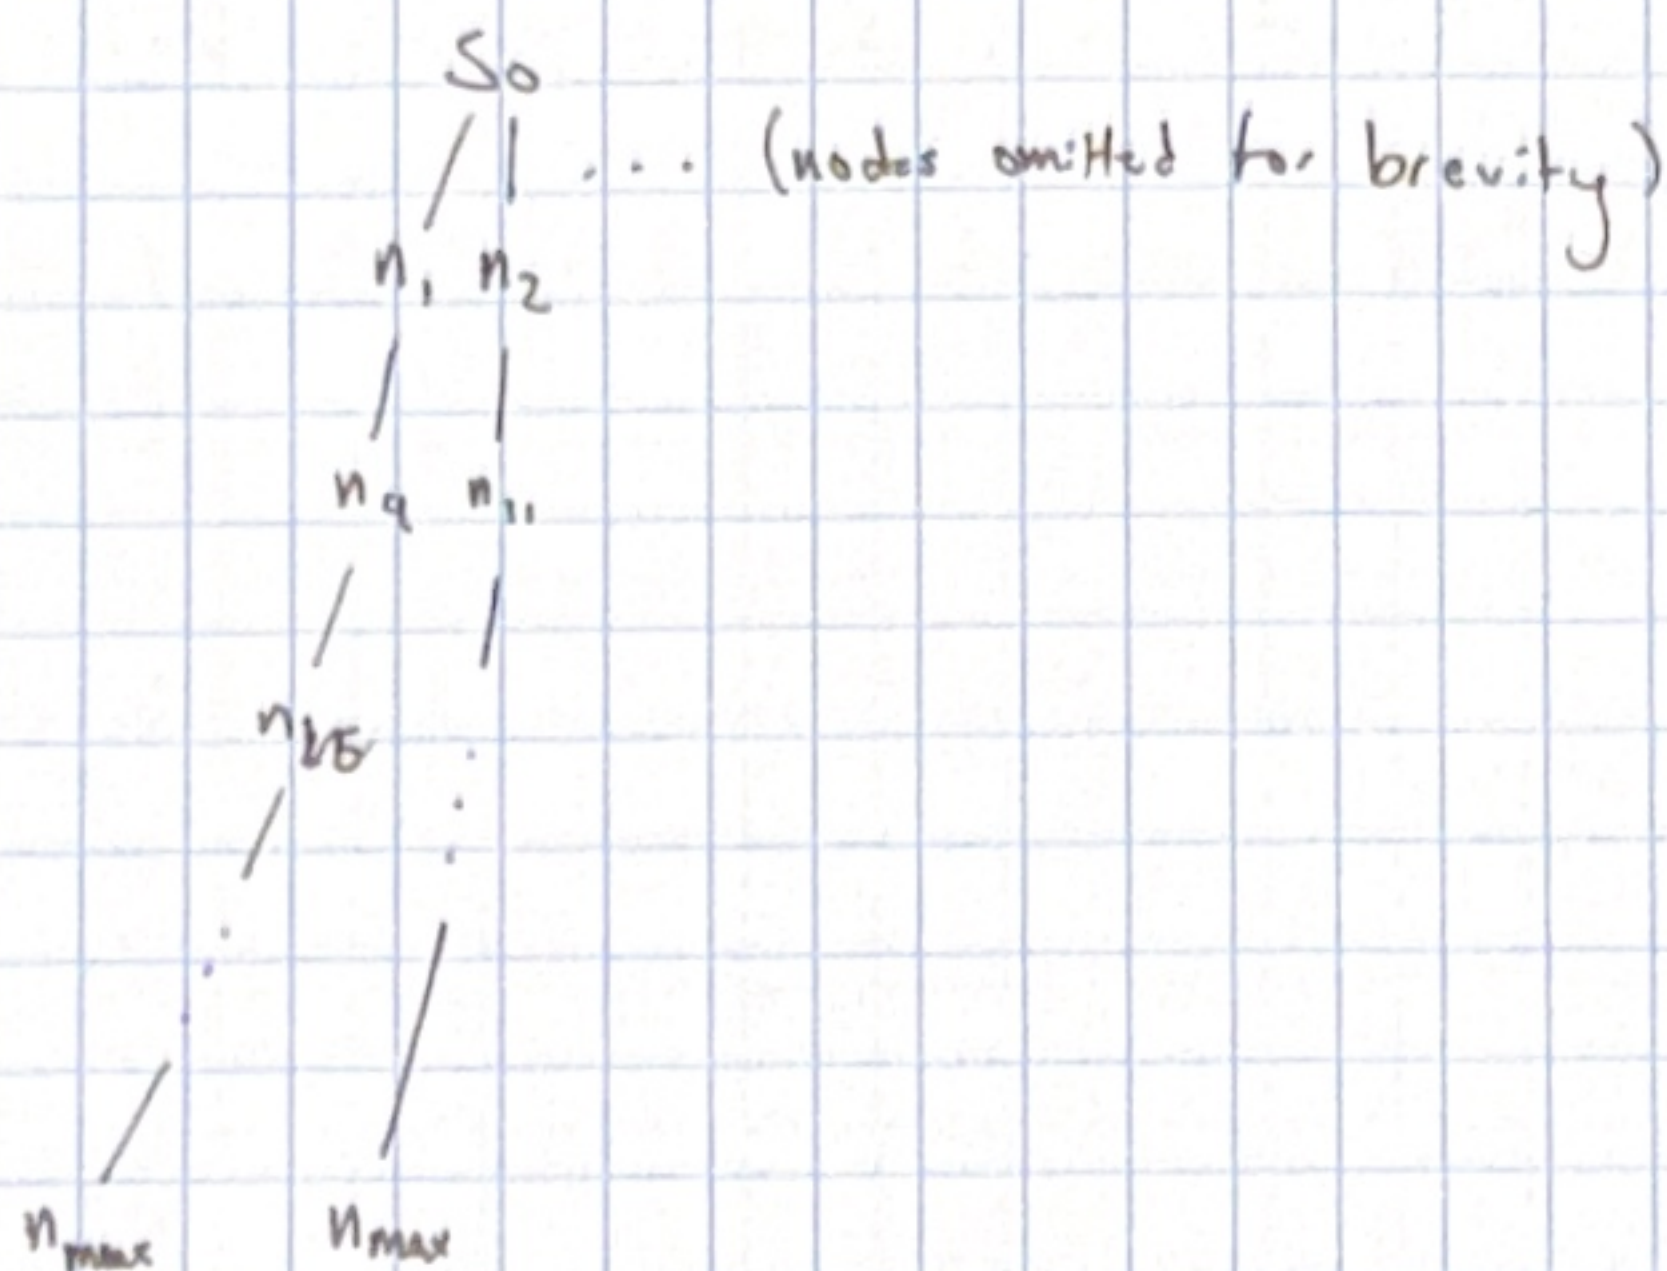 S₀
... (nodes omitted for brevity)
n₁ n₂
n₉ n₁₁
nmax nmax